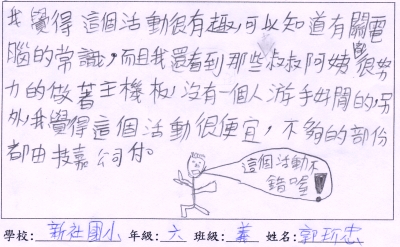 我覺得這個活動很有趣,可以知道有關電
腦的常識,而且我還看到那些叔叔阿姨很努
力的做著主機板,沒有一個人游手好閒的,另
外,我覺得這個活動很便宜,不夠的部份
都由技嘉公司付。
這個活動不
錯喔!
學校:新社國小 年級:六 班級:義 姓名:郭 忠